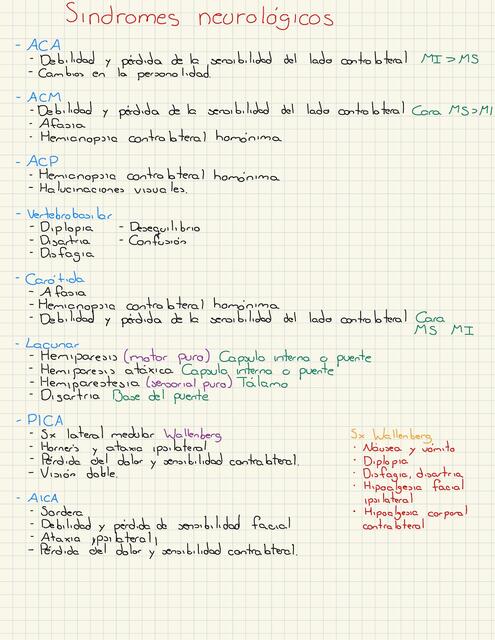 Sindromes neurológicos
- ACA
- Debilidad y pérdida de la sensibilidad del lado contralateral MI > MS
- Cambios en la personalidad.
- ACM
- Debilidad y pérdida de la sensibilidad del lado contralateral Cara MS>MI
- Afasia
- Hemianopsia contralateral homónima
- ACP
- Hemianopsia contralateral homónima
- Halucinaciones visuales.
- Vertebrobasilar
- Diplopia - Desequilibrio
- Disartria - Confusión
- Disfagia
- Carótida
- Afasia
- Hemianopsia contralateral homónima
- Debilidad y pérdida de la sensibilidad del lado contralateral Cara
MS MI
- Lacunar
- Hemiparesis (motor puro) Capsula interna o puente
- Hemiparesis atáxica Capsula interna o puente
- Hemiparestesia (sensorial puro) Tálamo
- Disartria Base del puente
- PICA
- Sx lateral medular Wallenberg
- Horner's y ataxia ipsilateral
- Pérdida del dolor y sensibilidad contralateral.
- Visión doble.
Sx Wallenberg
· Náusea y vómito
· Diplopia
· Disfagia, disartria
· Hipoalgesia facial
ipsilateral
· Hipoalgesia corporal
contralateral
- AICA
- Sordera
- Debilidad y pérdida de sensibilidad facial
- Ataxia ipsilateral
- Pérdida del dolor y sensibilidad contralateral.